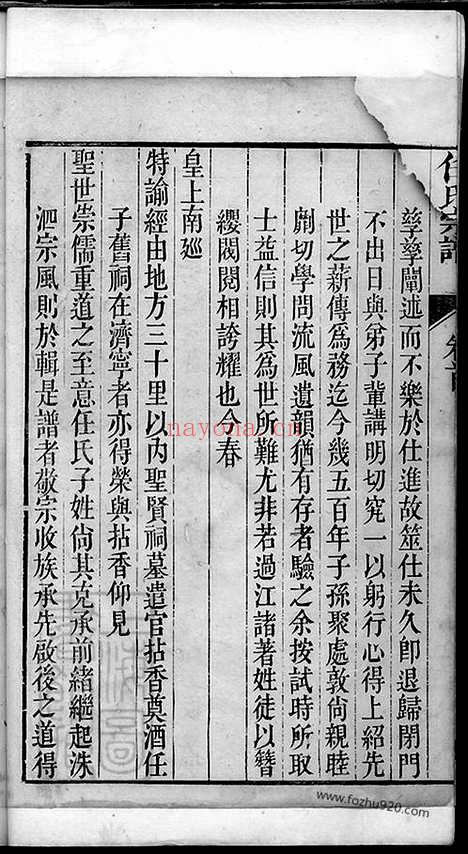 任氏宗譜
卷首
孳孳闡述而不樂於仕進故筮仕未久即退歸閉門
不出日與弟子輩講明切究一以躬行心得上紹先
世之薪傳爲務迄今幾五百年子孫聚處敦尙親睦
劘切學問流風遺韻猶有存者驗之余按試時所取
士益信則其爲世所難尤非若過江諸著姓徒以簪
纓閥閱相誇耀也今春
皇上南廵
特諭經由地方三十里以內聖賢祠墓遣官拈香奠酒任
子舊祠在濟寧者亦得榮與拈香仰見
聖世崇儒重道之至意任氏子姓尙其克承前緒繼起洙
泗宗風則於輯是譜者敬宗收族承先啟後之道得
nayona.cn
www.fozhu920.com